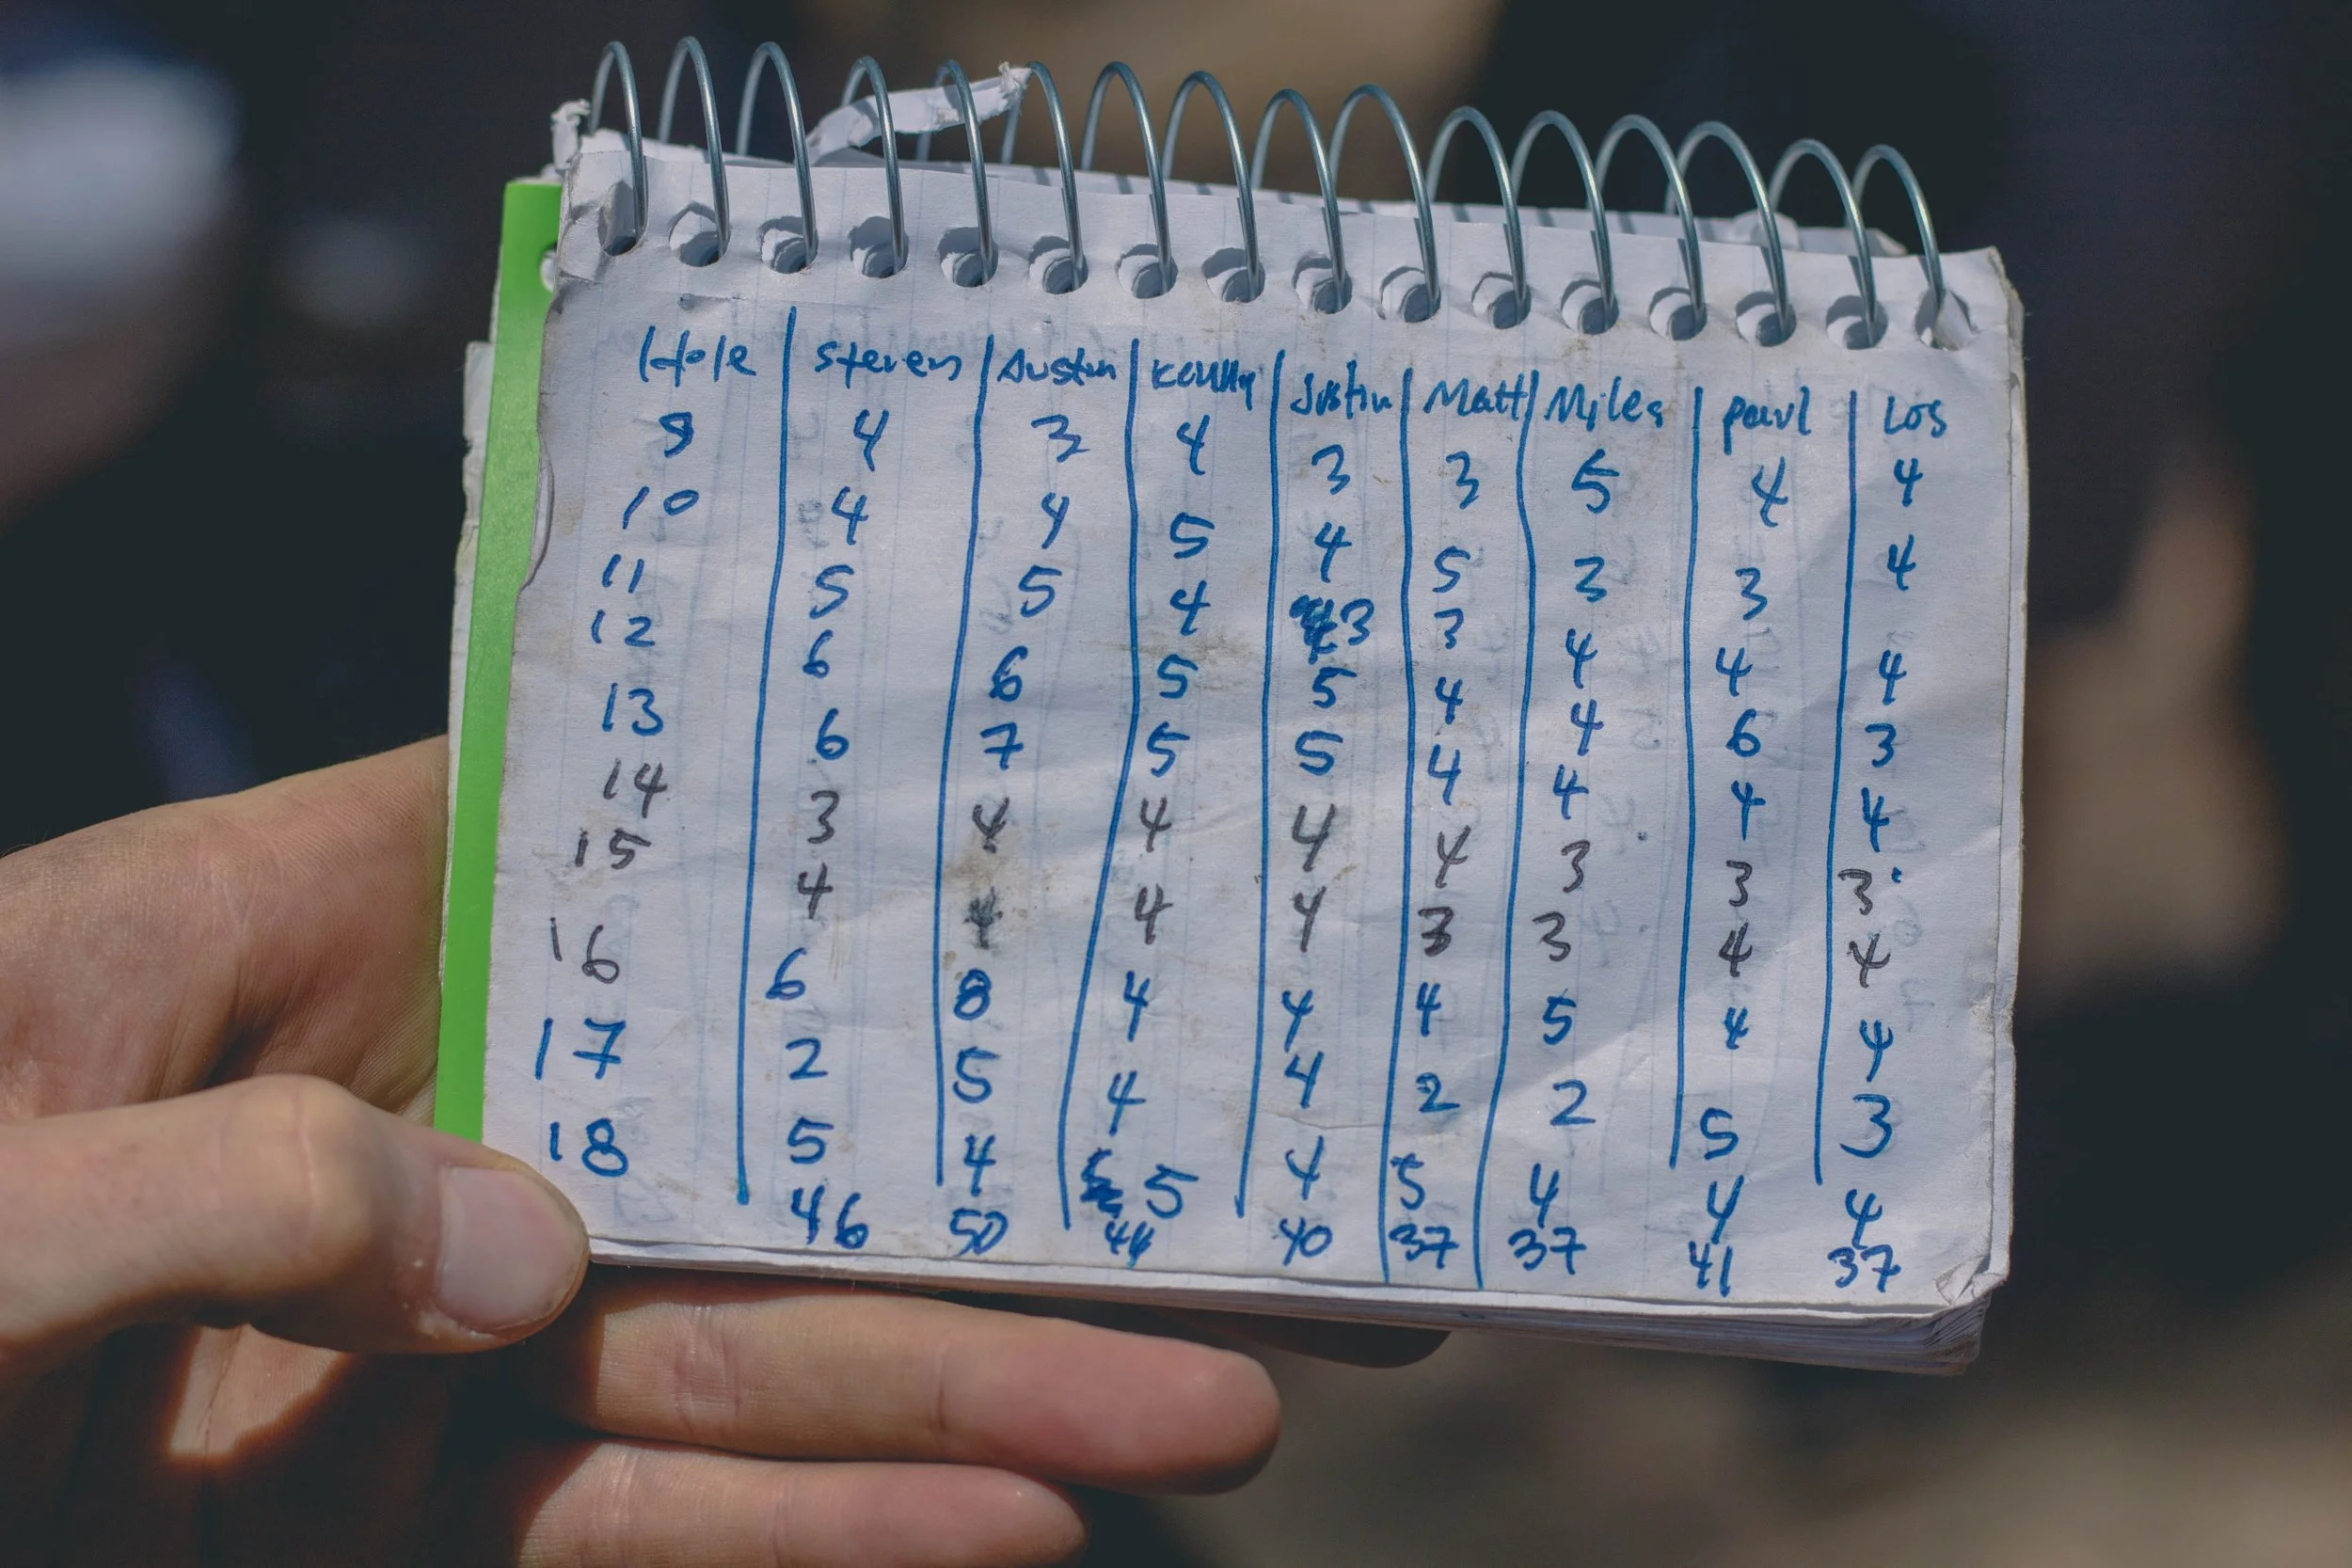 Hole Steven Austin Kenny Justin Matt Miles Paul Los
9 4 3 4 3 3 5 4 4
10 4 4 5 4 5 3 3 4
11 5 5 4 3 3 4 4 4
12 6 6 5 5 4 4 6 3
13 6 7 5 5 4 4 4 4
14 3 4 4 4 4 3 3 3
15 4 4 4 4 3 3 4 4
16 6 8 4 4 4 5 4 4
17 2 5 4 4 2 2 5 3
18 5 4 5 4 5 4 4 4
46 50 44 40 37 37 41 37